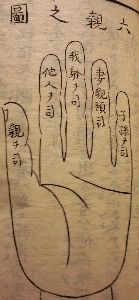 六親之圖
子孫ヲ司
妻親類ヲ司
我ヲ司
他人ヲ司
親ヲ司